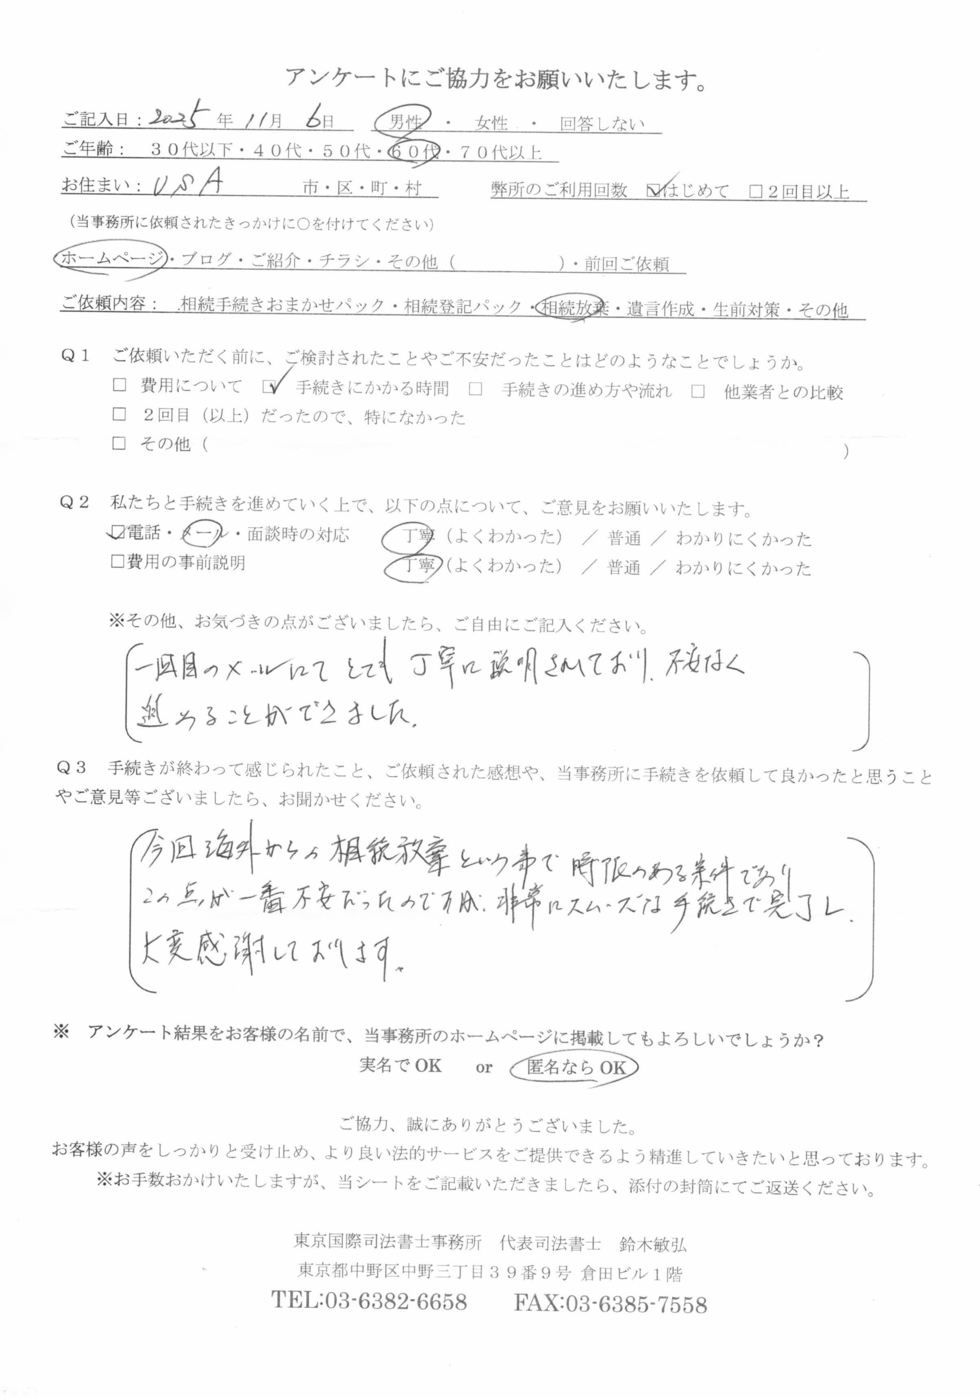 アンケートにご協力をお願いいたします。
ご記入日：2025年 11月 6日　男性 ・ 女性 ・ 回答しない
ご年齢： 30代以下・40代・50代・60代・70代以上
お住まい：USA 市・区・町・村　弊所のご利用回数 ☑はじめて □2回目以上
（当事務所に依頼されたきっかけに〇を付けてください）
ホームページ・ブログ・ご紹介・チラシ・その他（　　　　　）・前回ご依頼
ご依頼内容： 相続手続きおまかせパック・相続登記パック・相続放棄・遺言作成・生前対策・その他
Q1 ご依頼いただく前に、ご検討されたことやご不安だったことはどのようなことでしょうか。
□ 費用について ☑ 手続きにかかる時間 □ 手続きの進め方や流れ □ 他業者との比較
□ 2回目（以上）だったので、特になかった
□ その他（　　　　　）
Q2 私たちと手続きを進めていく上で、以下の点について、ご意見をお願いいたします。
☑電話・メール・面談時の対応　丁寧（よくわかった） ／ 普通 ／ わかりにくかった
□費用の事前説明　丁寧（よくわかった） ／ 普通 ／ わかりにくかった
※その他、お気づきの点がございましたら、ご自由にご記入ください。
一回目のメールにてとても丁寧に説明されており、不安なく
進めることができました。
Q3 手続きが終わって感じられたこと、ご依頼された感想や、当事務所に手続きを依頼して良かったと思うこと
やご意見等ございましたら、お聞かせください。
今回海外からの相続放棄という事で時限のある案件であり
この点が一番不安だったのですが、非常にスムーズな手続きで完了し、
大変感謝しております。
※ アンケート結果をお客様の名前で、当事務所のホームページに掲載してもよろしいでしょうか？
実名でOK or 匿名ならOK
ご協力、誠にありがとうございました。
お客様の声をしっかりと受け止め、より良い法的サービスをご提供できるよう精進していきたいと思っております。
※お手数おかけいたしますが、当シートをご記載いただきましたら、添付の封筒にてご返送ください。
東京国際司法書士事務所 代表司法書士 鈴木敏弘
東京都中野区中野三丁目39番9号 倉田ビル1階
TEL:03-6382-6658 FAX:03-6385-7558